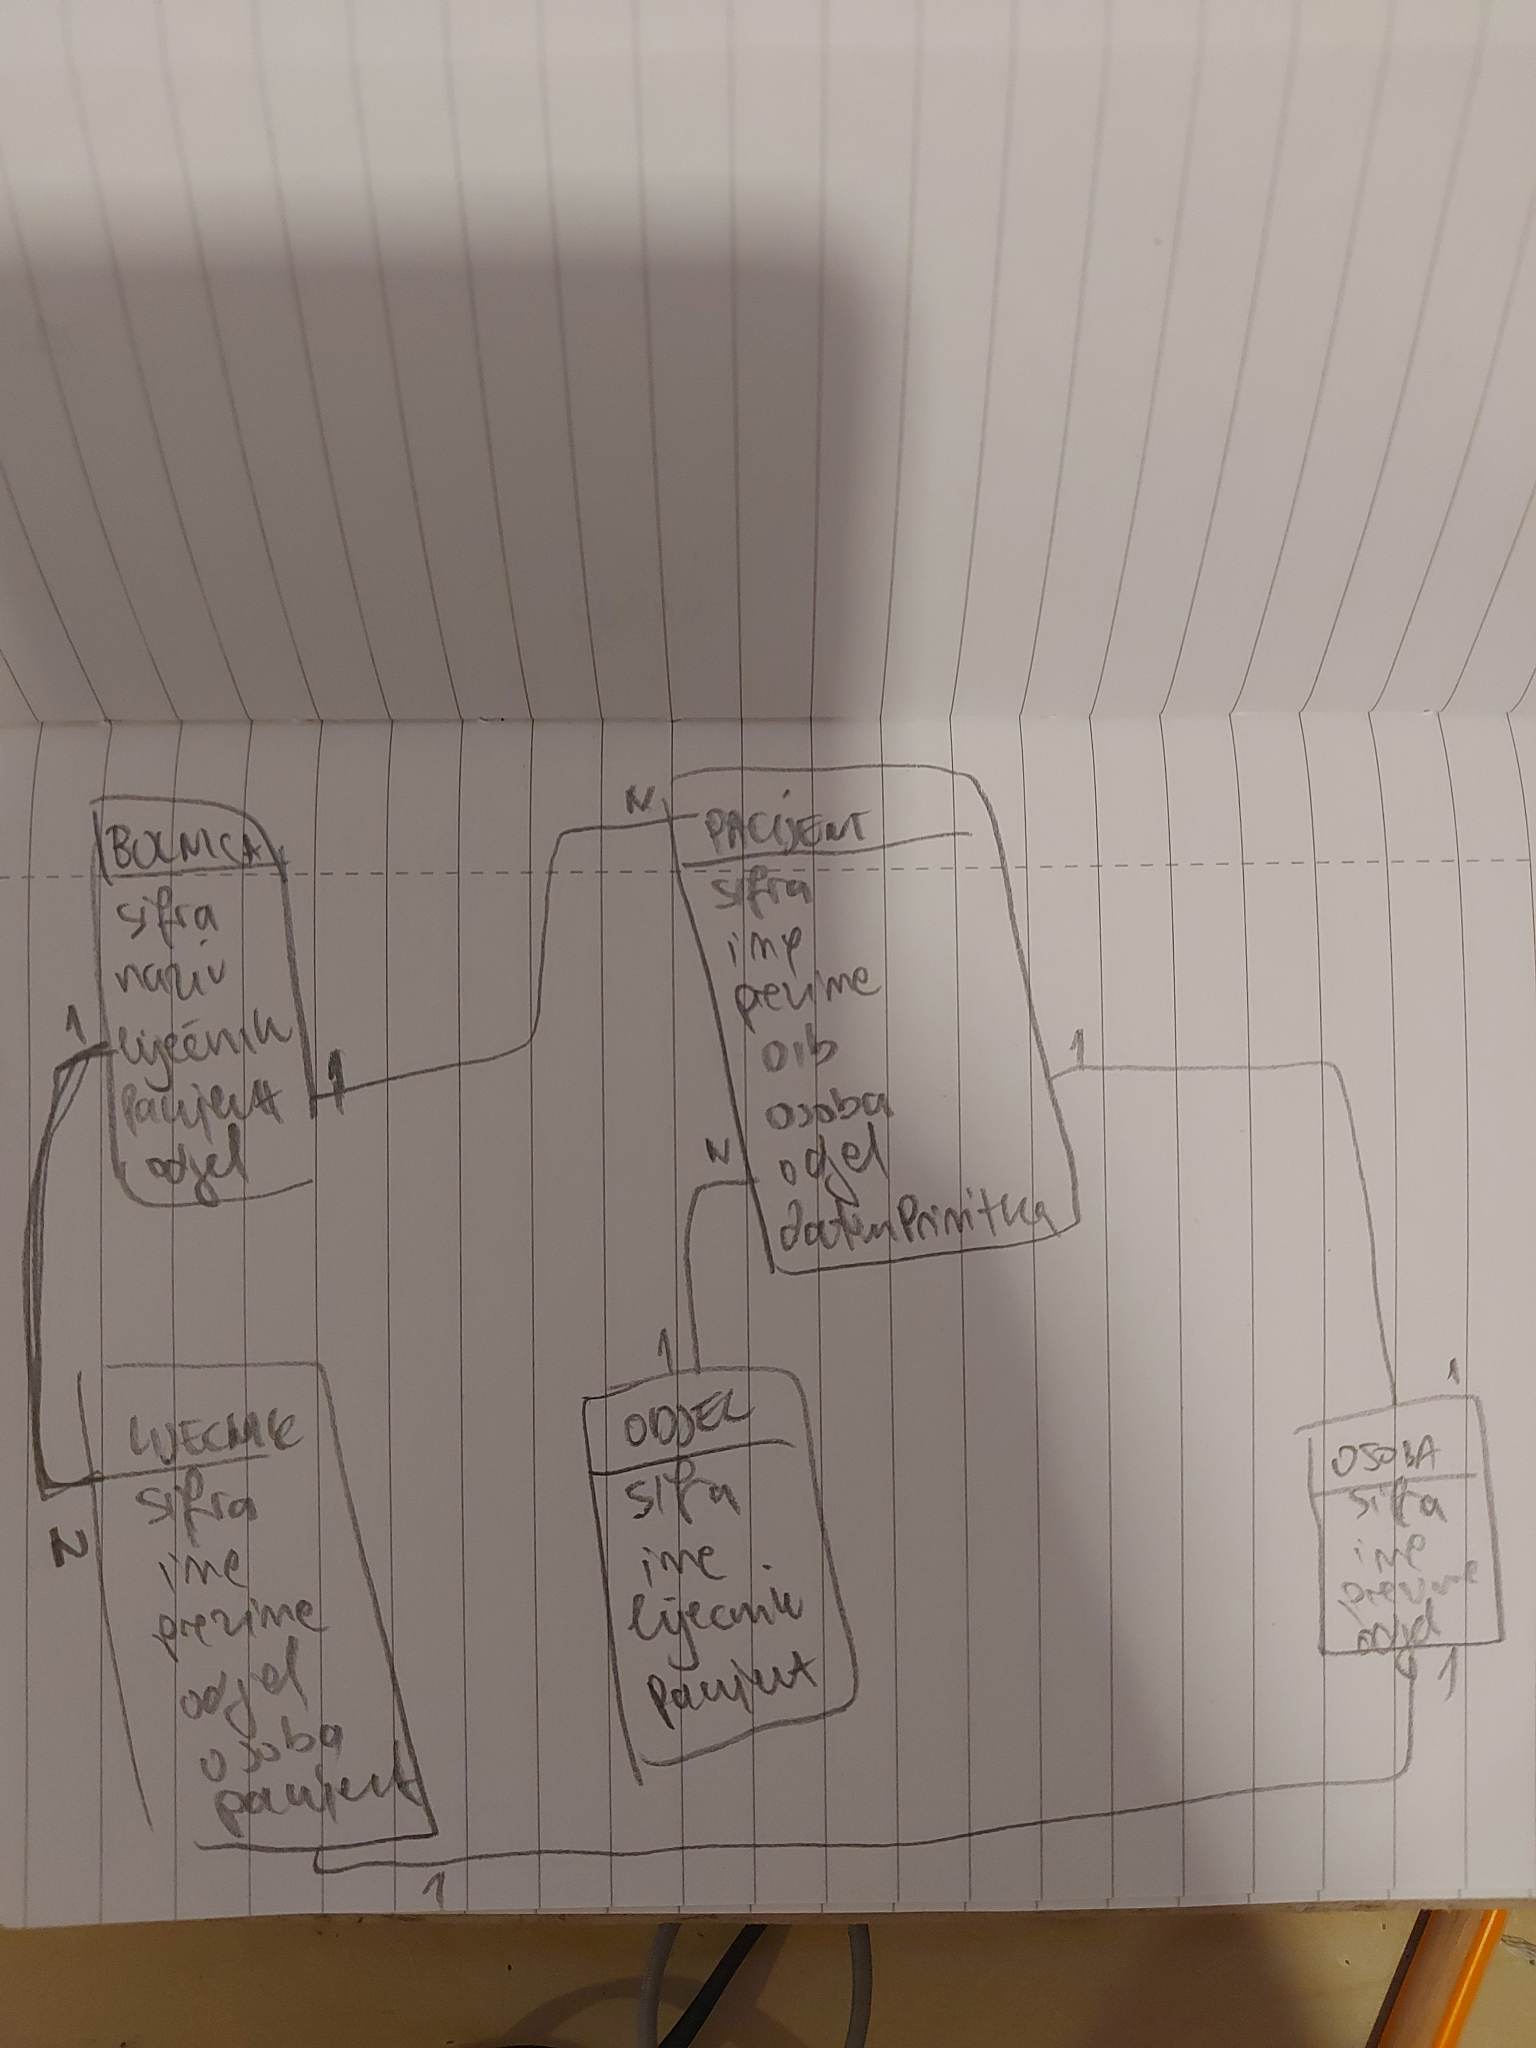 BOLNICA
sifra
naziv
liječnik
pacijent
odjel
1
1
N
PACIJENT
sifra
ime
prezime
oib
osoba
odjel
datumPrimitka
N
1
LIJECNIK
sifra
ime
prezime
odjel
osoba
pacijent
N
1
ODJEL
sifra
ime
liječnik
pacijent
1
OSOBA
sifra
ime
prezime
odjel
1
1